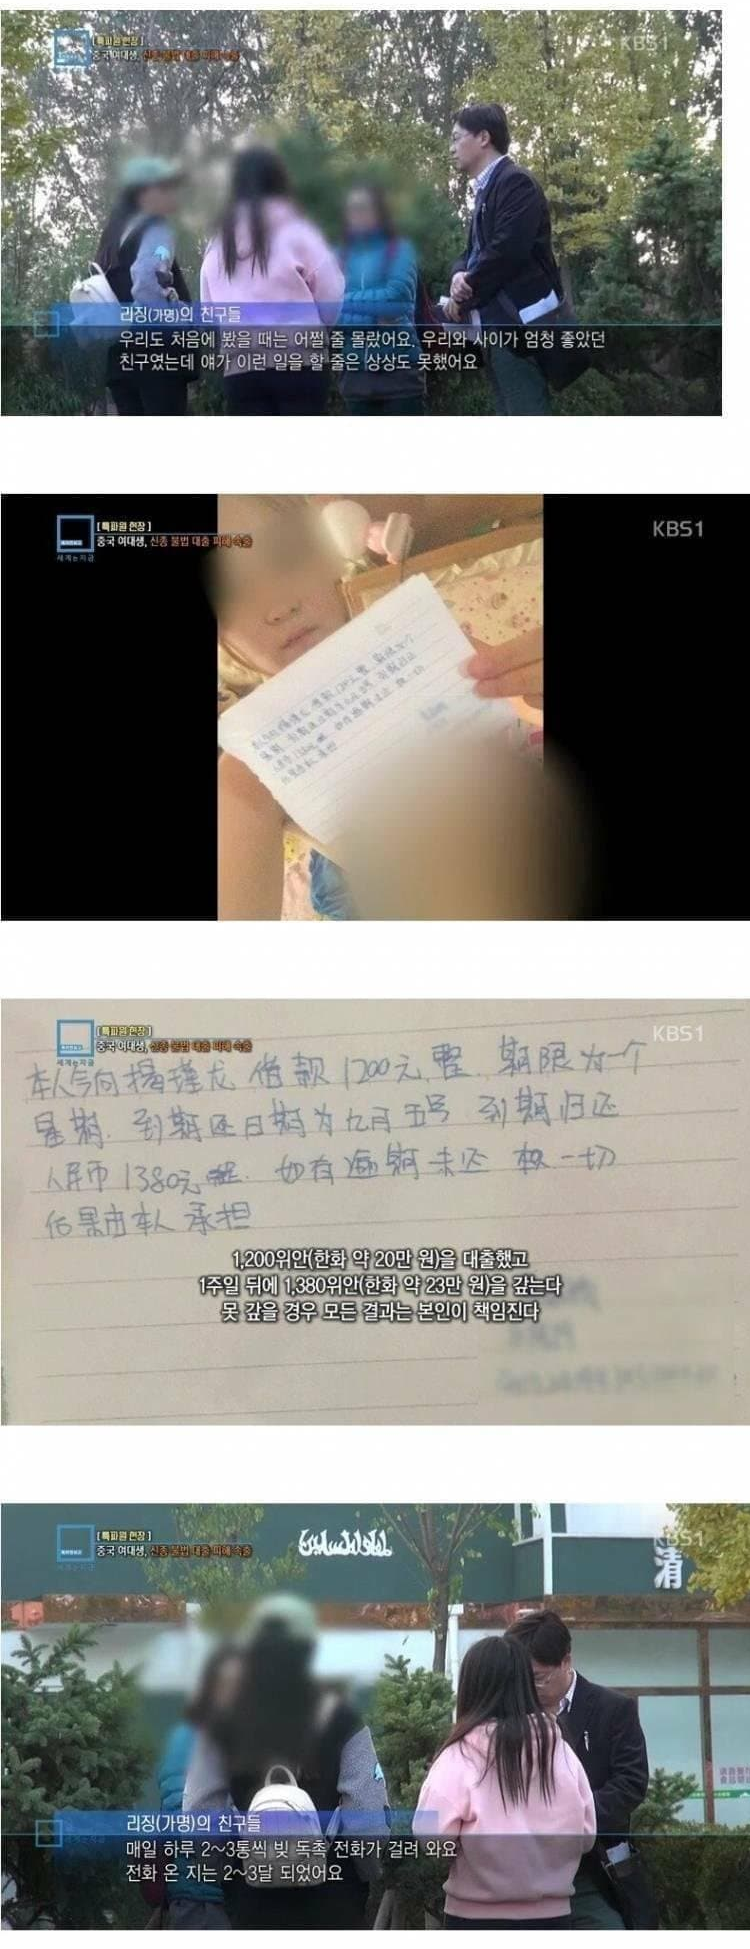 [특파원 현장]
중국 여대생, 신종 불법 대출 피해 속출
KBS1
리징(가명)의 친구들
우리도 처음에 봤을 때는 어쩔 줄 몰랐어요. 우리와 사이가 엄청 좋았던
친구였는데 얘가 이런 일을 할 줄은 상상도 못했어요
[특파원 현장]
중국 여대생, 신종 불법 대출 피해 속출
세계는 지금
KBS1
[특파원 현장]
중국 여대생, 신종 불법 대출 피해 속출
세계는 지금
KBS1
本人今向杨瑾龙 借款 1200元整. 期限为一个
星期. 到期还日期为九月五号 到期归还
人民币 1380元整. 如有逾期未还 一切
后果由本人 承担
1,200위안(한화 약 20만 원)을 대출했고
1주일 뒤에 1,380위안(한화 약 23만 원)을 갚는다
못 갚을 경우 모든 결과는 본인이 책임진다
[특파원 현장]
중국 여대생, 신종 불법 대출 피해 속출
세계는 지금
KBS1
清
리징(가명)의 친구들
매일 하루 2~3통씩 빚 독촉 전화가 걸려 와요
전화 온 지는 2~3달 되었어요